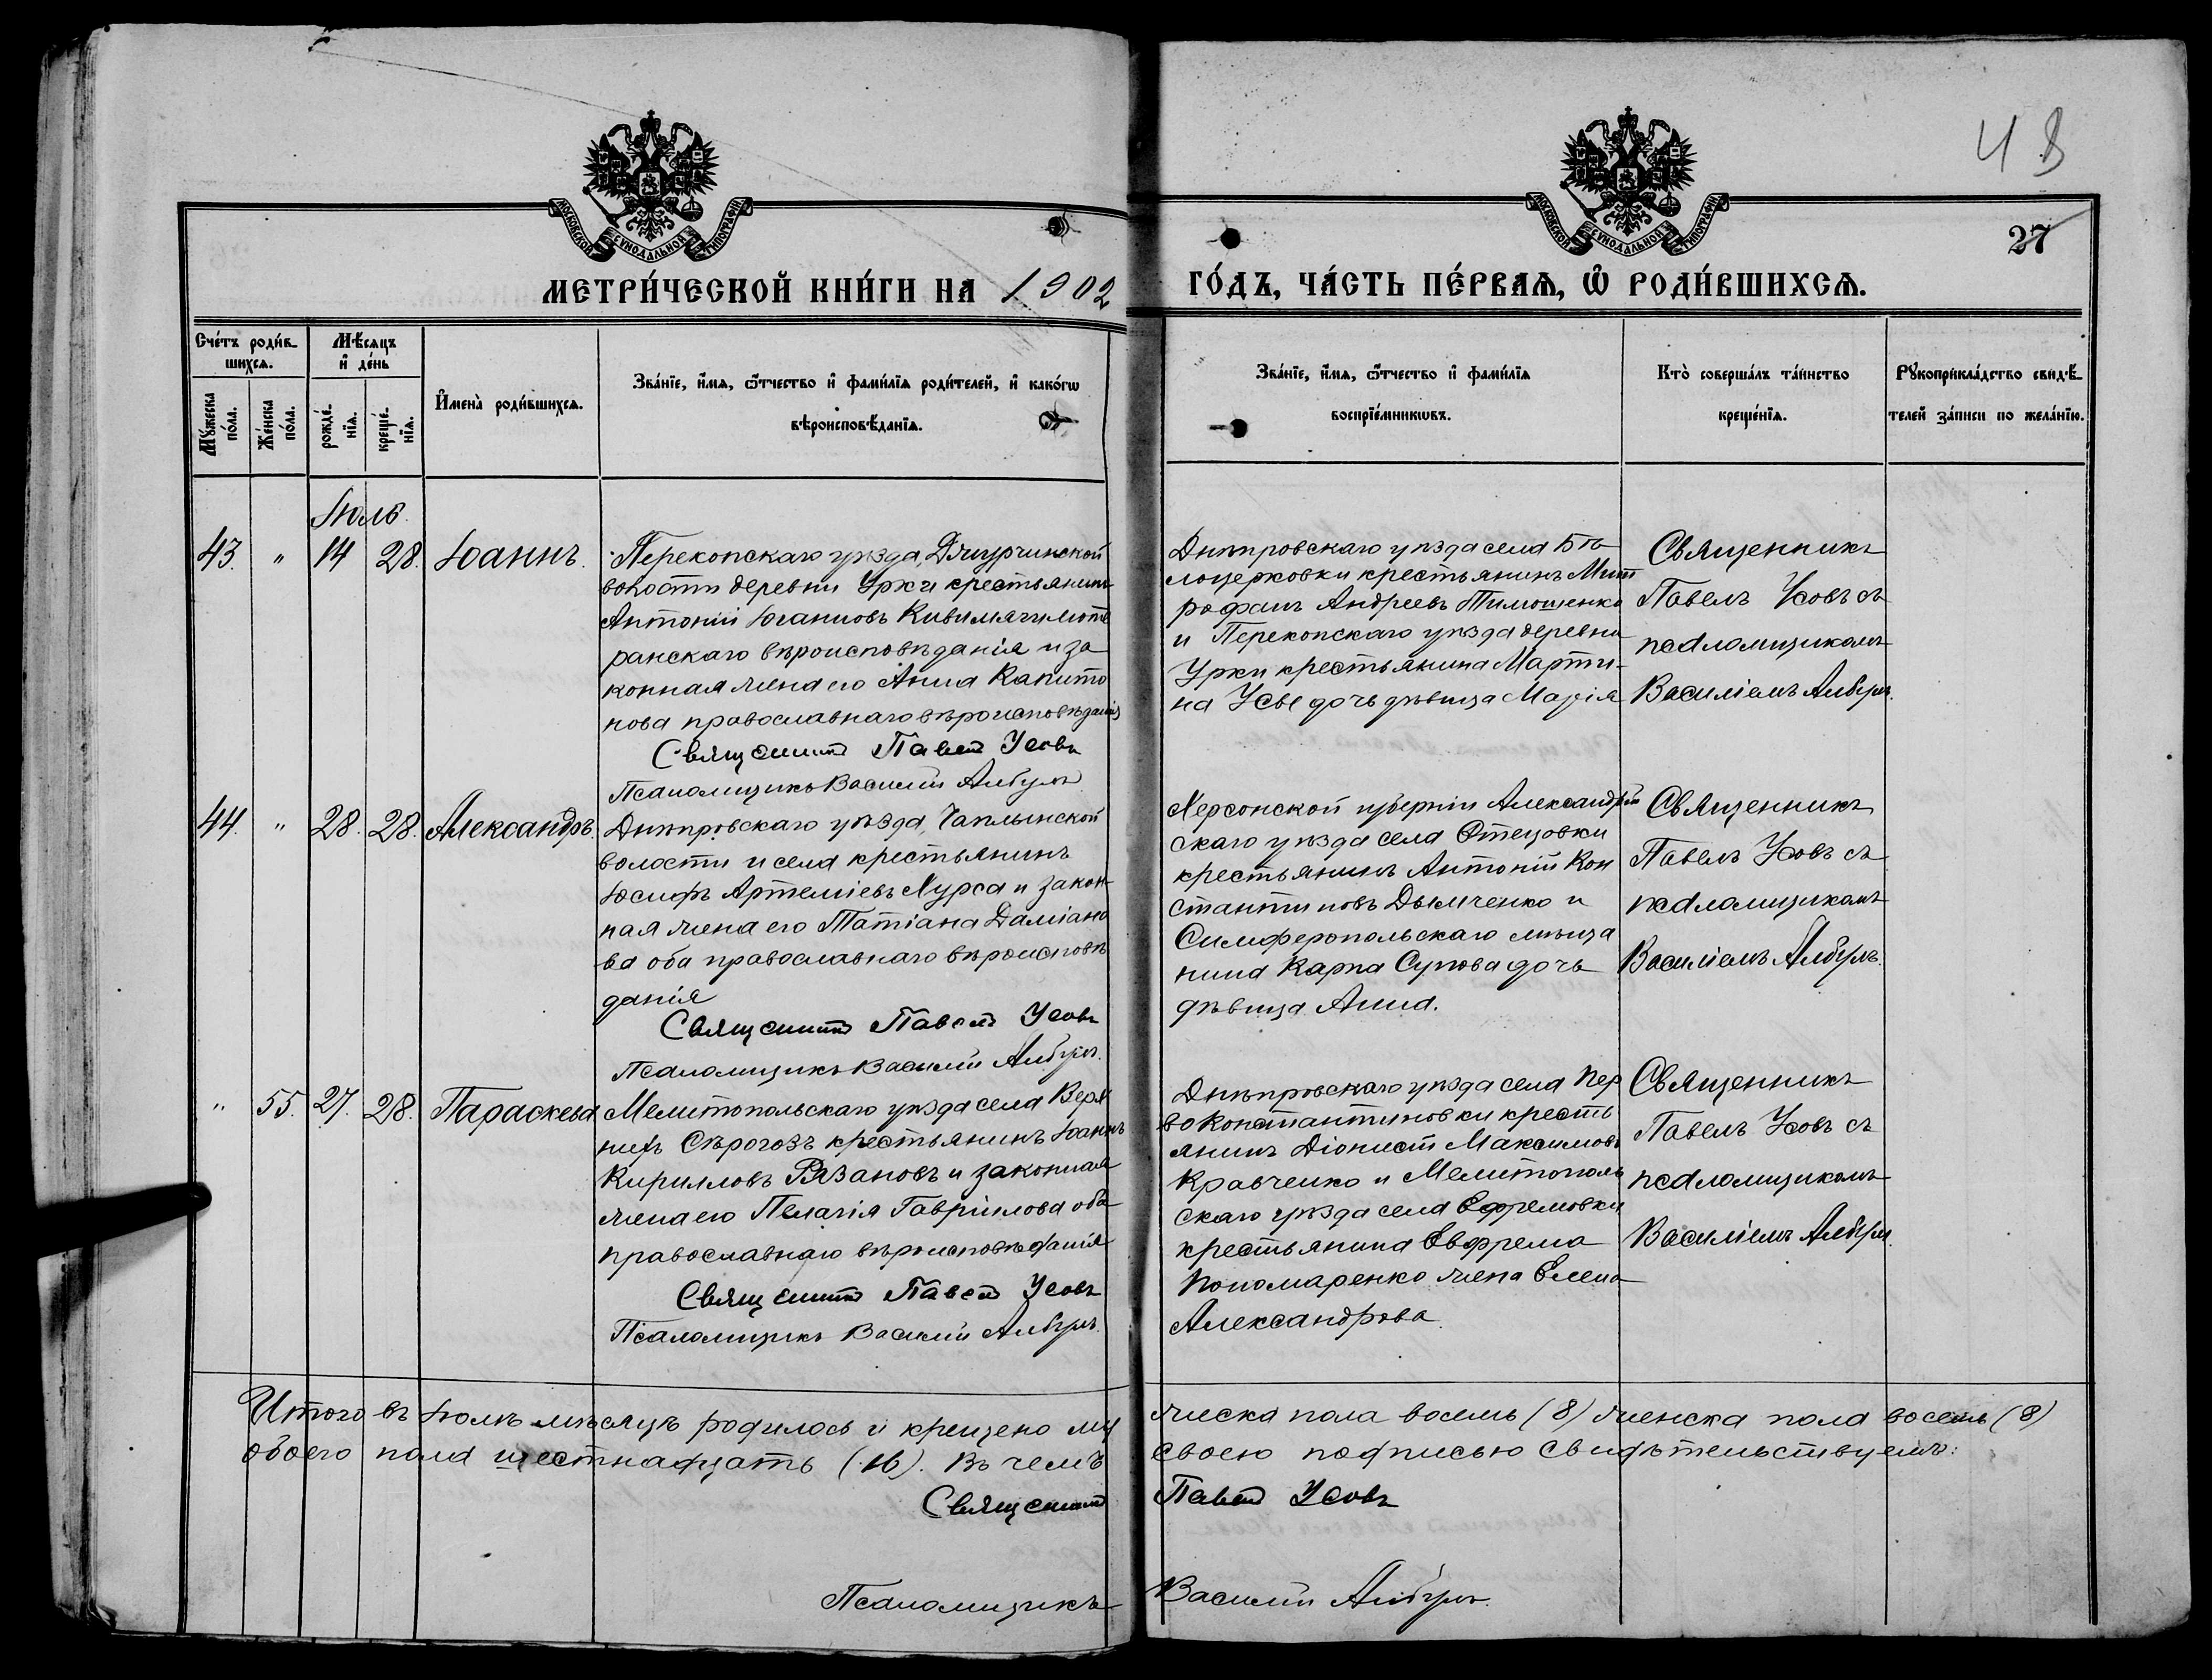 43
27
МОСКОВСКОЙ СѴНОДАЛЬНОЙ ТИПОГРАФІИ
МОСКОВСКОЙ СѴНОДАЛЬНОЙ ТИПОГРАФІИ
МЕТРИ́ЧЕСКОЙ КНИ́ГИ НА 1902 ГО́ДЪ, ЧА́СТЬ ПЕ́РВАѦ, Ѡ҆ РОДИ́ВШИХСѦ.
Сче́тъ роди́в-
шихсѧ.
Мѣ́сѧцъ
и҆ де́нь
Мꙋ́жеска
по́ла.
Же́нска
по́ла.
рожде́-
нїѧ.
креще́-
нїѧ.
И҆мена̀ роди́вшихсѧ.
Зва́нїе, и҆́мѧ, ѻ҆́тчество и҆ фами́лїѧ роди́телей, и҆ како́гѡ
вѣроисповѣ́данїѧ.
Зва́нїе, и҆́мѧ, ѻ҆́тчество и҆ фами́лїѧ
воспрїе́мникѡвъ.
Кто̀ соверша́лъ та́инство
креще́нїѧ.
Рꙋкоприкла́дство свидѣ́-
телей за́писи по жела́нїю.
Іюль.
43. " 14 28. Іоаннъ.
Перекопскаго уѣзда, Джурчинской
волости деревни Урки крестьянинъ
Антоній Іоанновъ Кивимяги люте
ранскаго вѣроисповѣданія и за
конная жена его Анна Капито
нова православнаго вѣроисповѣданія
Священникъ Павелъ Усовъ
Псаломщикъ Василій Албулъ
Днѣпровскаго уѣзда села Бѣ
лоцерковки крестьянинъ Мит
рофанъ Андреевъ Тимошенко
и Перекопскаго уѣзда деревни
Урки крестьянина Марти-
на Усы дочь дѣвица Марія
Священникъ
Павелъ Усовъ съ
псаломщикомъ
Василіемъ Албулъ.
44. " 28. 28. Александръ.
Днѣпровскаго уѣзда, Чаплынской
волости и села крестьянинъ
Іосифъ Артеміевъ Хурса и закон-
ная жена его Татіана Даміано
ва оба православнаго вѣроисповѣ
данія
Священникъ Павелъ Усовъ
Псаломщикъ Василій Албулъ.
Херсонской губерніи Александрій
скаго уѣзда села Отецовки
крестьянинъ Антоній Кон
стантиновъ Дымченко и
Симферопольскаго мѣща
нина Карпа Сукова дочь
дѣвица Анна.
Священникъ
Павелъ Усовъ съ
псаломщикомъ
Василіемъ Албулъ.
" 55. 27. 28. Параскева
Мелитопольскаго уѣзда села Верх
нихъ Сѣрогозъ крестьянинъ Іоаннъ
Кирилловъ Рязановъ и законная
жена его Пелагія Гавріилова оба
православнаго вѣроисповѣданія
Священникъ Павелъ Усовъ
Псаломщикъ Василій Албулъ.
Днѣпровскаго уѣзда села Пер
воконстантиновки кресть
янинъ Діонисій Максимовъ
Кравченко и Мелитополь
скаго уѣзда села Ефремовки
крестьянина Евфрема
Пономаренко жена Елена
Александрова.
Священникъ
Павелъ Усовъ съ
псаломщикомъ
Василіемъ Албулъ.
Итого въ Іюлѣ мѣсяцѣ родилось и крещено му жеска пола восемь (8) женска пола восемь (8)
обоего пола шестнадцать (16). Въ чемъ своею подписью свидѣтельствуемъ:
Священникъ Павелъ Усовъ
Псаломщикъ Василій Албулъ.